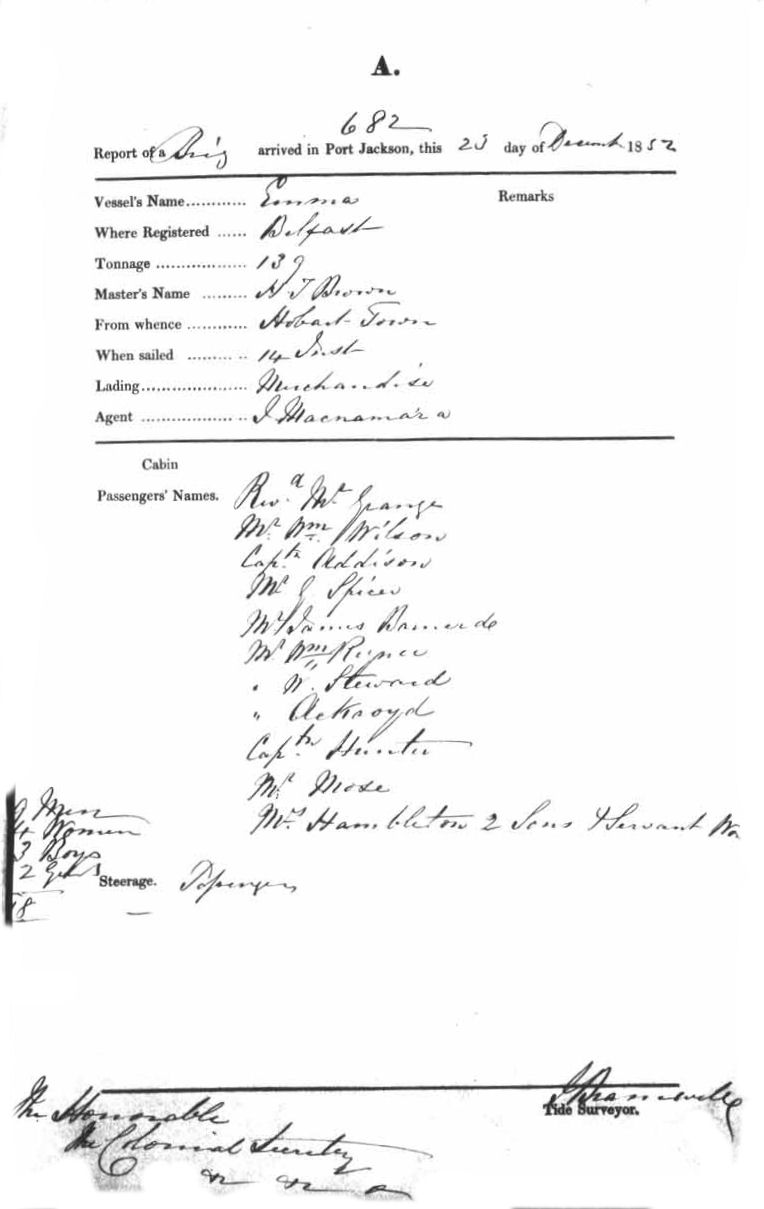 A.
682
Report of a Brig arrived in Port Jackson, this 23 day of Decemb 1852
Vessel's Name............ Emma Remarks
Where Registered ...... Belfast
Tonnage .................. 139
Master's Name ......... H T Brown
From whence ............ Hobart Town
When sailed ......... .. 14 Inst
Lading..................... Merchandise
Agent .................. .. I Macnamara
Cabin
Passengers' Names. Revd. Mr Grange
Mr. Wm Wilson
Captn Addison
Mr J Spicer
Mr James
Mr Wm
" W. Steward
" Ackroyd
Captn Hunter
Mr Mose
Mrs Hambleton 2 Sons & Servant Wo
9 Men
4 Women
3 Boys
2 Girls
18
Steerage.
Tide Surveyor.
The Honorable
The Colonial Secretary
&c &c &c